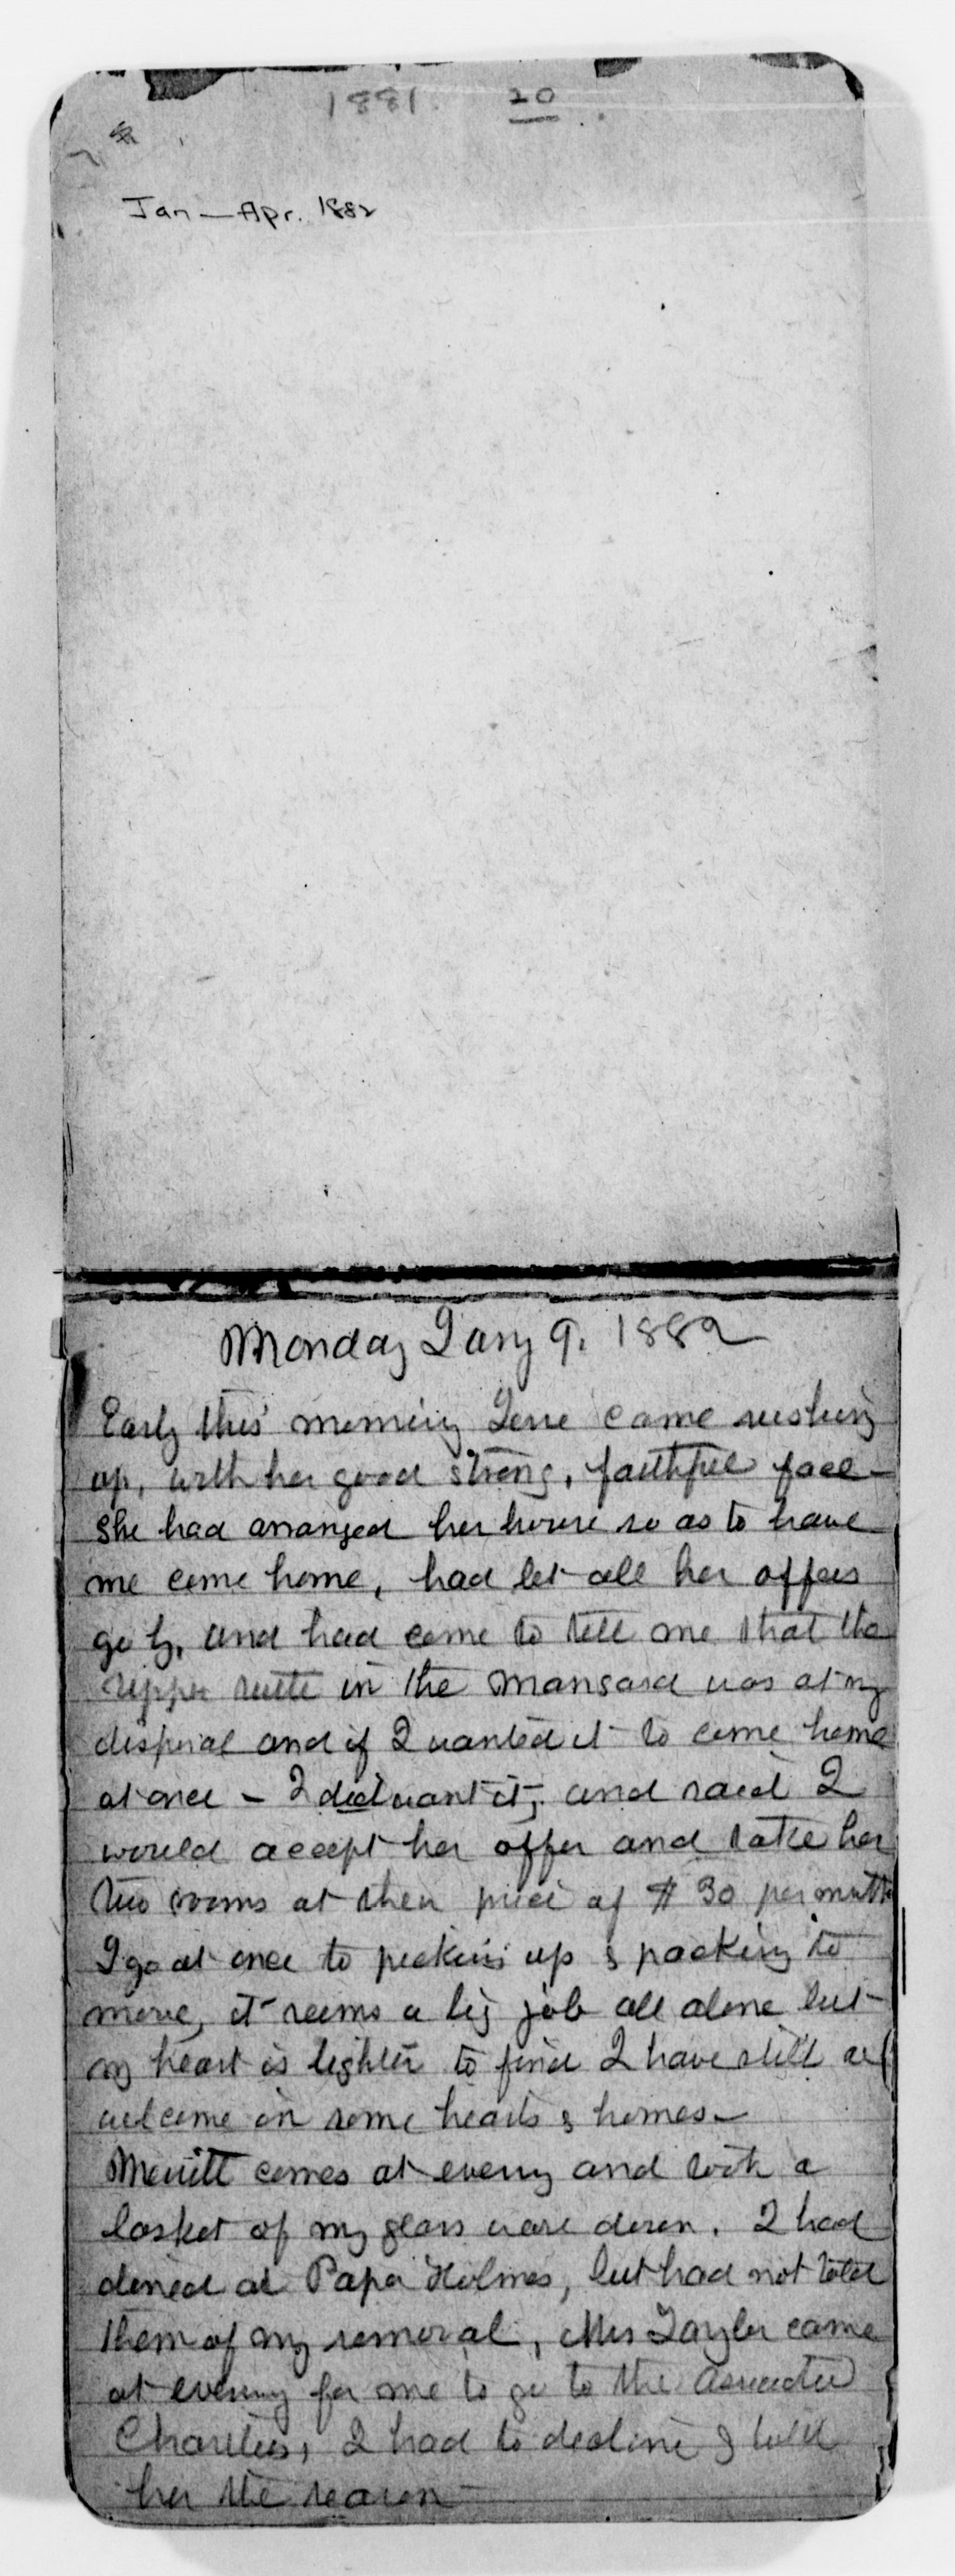 1881. 20
Jan — Apr. 1882
Monday Jany 9. 1882
Early this morning Jene came rushing
up, with her good strong, faithful face -
She had arranged her house so as to have
me come home, had let all her offers
go by, and had come to tell me that the
upper suite in the mansard was at my
disposal and if I wanted it to come home
at once - I did want it, and said I
would accept her offer and take her
two rooms at their price of $30 per month
I go at once to picking up & packing to
move, it seems a big job all alone but
my heart is lighter to find I have still a
welcome in some hearts & homes -
Merritt comes at evening and took a
basket of my glass ware down. I had
dined at Papa Holmes, but had not told
them of my removal, Mrs Taylor came
at evening for me to go to the Associated
Charities, I had to decline & told
her the reason -